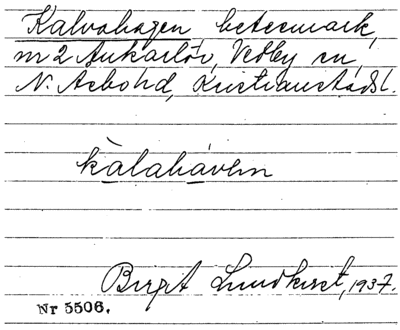 Kalvahagen betesmark,
nr 2 Ankarlöv, Vedby sn,
N. Åsbohd, Kristianstads l.
kàlahávem
Birgit Lundkvist, 1937.
Nr 5506.